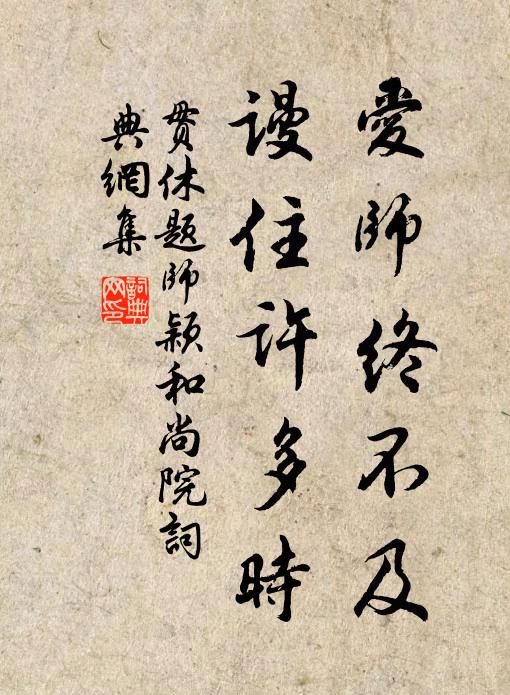 愛師終不及
謾住許多時
貫休題師穎和尚院詞
典網集
詞典
网印